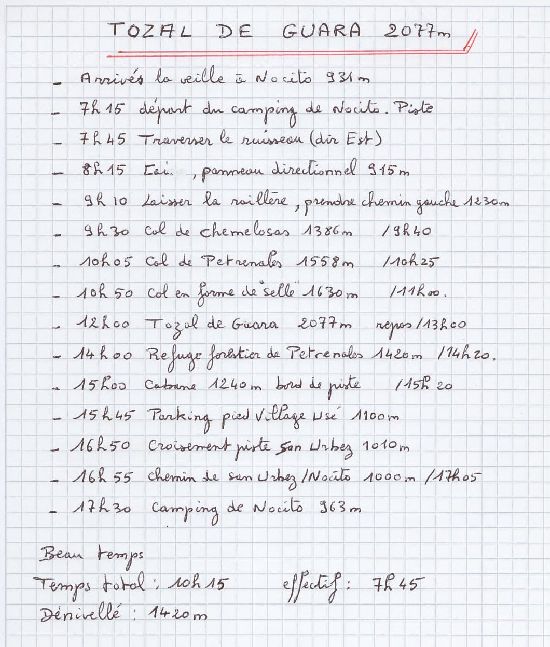 TOZAL DE GUARA 2077m
- Arrivés la veille à Nocito 931m
- 7h15 départ du camping de Nocito. Piste
- 7h45 Traverser le ruisseau (dir Est)
- 8h15 , panneau directionnel 915m
- 9h10 Laisser la raillère, prendre chemin gauche 1230m
- 9h30 Col de Chemelosas 1386m /9h40
- 10h05 Col de Petrenales 1558m /10h25
- 10h50 Col en forme de "selle" 1630m /11h00.
- 12h00 Tozal de Guara 2077m repos /13h00
- 14h00 Refuge forestier de Petrenales 1420m /14h20.
- 15h00 Cabane 1240m bord de piste /15h20
- 15h45 Parking pied Village Usé 1100m
- 16h50 Croisement piste San Urbez 1010m
- 16h55 chemin de san Urbez/Nocito 1000m /17h05
- 17h30 Camping de Nocito 963m
Beau temps
Temps total : 10h15 effectif : 7h45
Dénivellé : 1420m